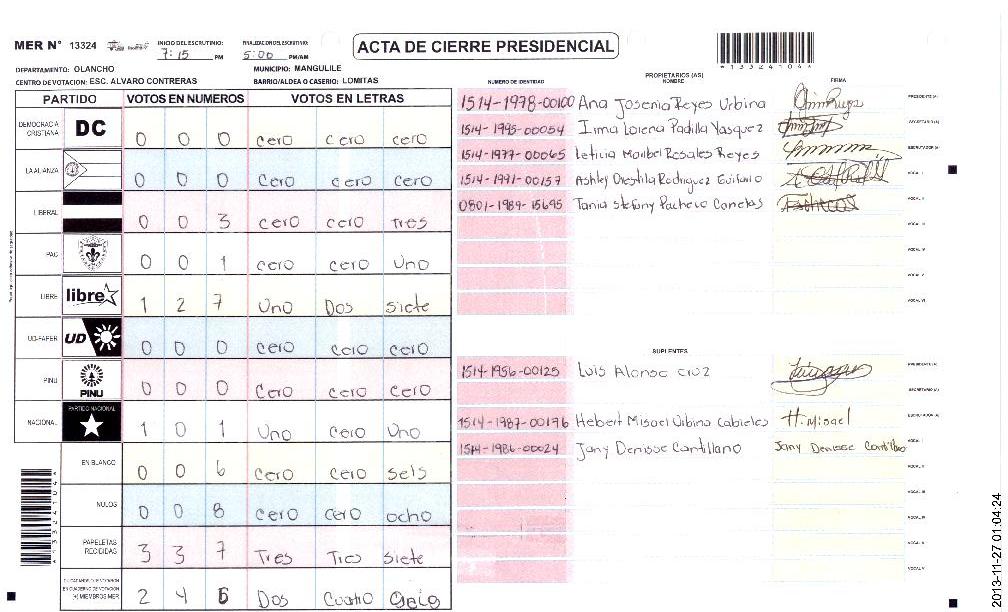 MER N° 13324
INICIO DEL ESCRUTINIO: 7:15 PM
FINALIZACION DEL ESCRUTINIO: 5:00 PM/AM
ACTA DE CIERRE PRESIDENCIAL
DEPARTAMENTO: OLANCHO
MUNICIPIO: MANGULILE
CENTRO DE VOTACION: ESC. ALVARO CONTRERAS
BARRIO/ALDEA O CASERIO: LOMITAS
PARTIDO VOTOS EN NUMEROS VOTOS EN LETRAS
DEMOCRACIA CRISTIANA DC 0 0 0 cero cero cero
LA ALIANZA 0 0 0 cero cero cero
LIBERAL 0 0 3 cero cero Tres
PAC 0 0 1 cero cero Uno
LIBRE libre 1 2 7 Uno Dos siete
UD-FAPER UD 0 0 0 cero cero cero
PINU PINU 0 0 0 cero cero cero
NACIONAL PARTIDO NACIONAL 1 0 1 Uno cero Uno
EN BLANCO 0 0 6 cero cero seis
NULOS 0 0 8 cero cero ocho
PAPELETAS RECIBIDAS 3 3 7 Tres Tres siete
2 4 6 Dos Cuatro
NUMERO DE IDENTIDAD
PROPIETARIOS (AS)
NOMBRE
FIRMA
1514-1978-00100 Ana Josenia Reyes Urbina PRESIDENTE (A)
1514-1995-00054 Irma Lorena Padilla Vasquez SECRETARIO (A)
1514-1977-00065 Leticia Maribel Rosales Reyes ESCRUTADOR (A)
1514-1991-00157 Ashley Orestila Rodriguez VOCAL I
0801-1989-15695 Tania Stefany Pacheco Canelas VOCAL II
VOCAL III
VOCAL IV
VOCAL V
VOCAL VI
SUPLENTES
1514-1956-00125 Luis Alonso Cruz PRESIDENTE (A)
SECRETARIO (A)
1514-1987-00196 Hebert Misael Urbina H. Misael ESCRUTADOR (A)
1514-1986-00024 Jany Denisse Cantillano Jany Denisse Cantillano VOCAL I
VOCAL II
VOCAL III
VOCAL IV
VOCAL V
2013-11-27 01:04:24